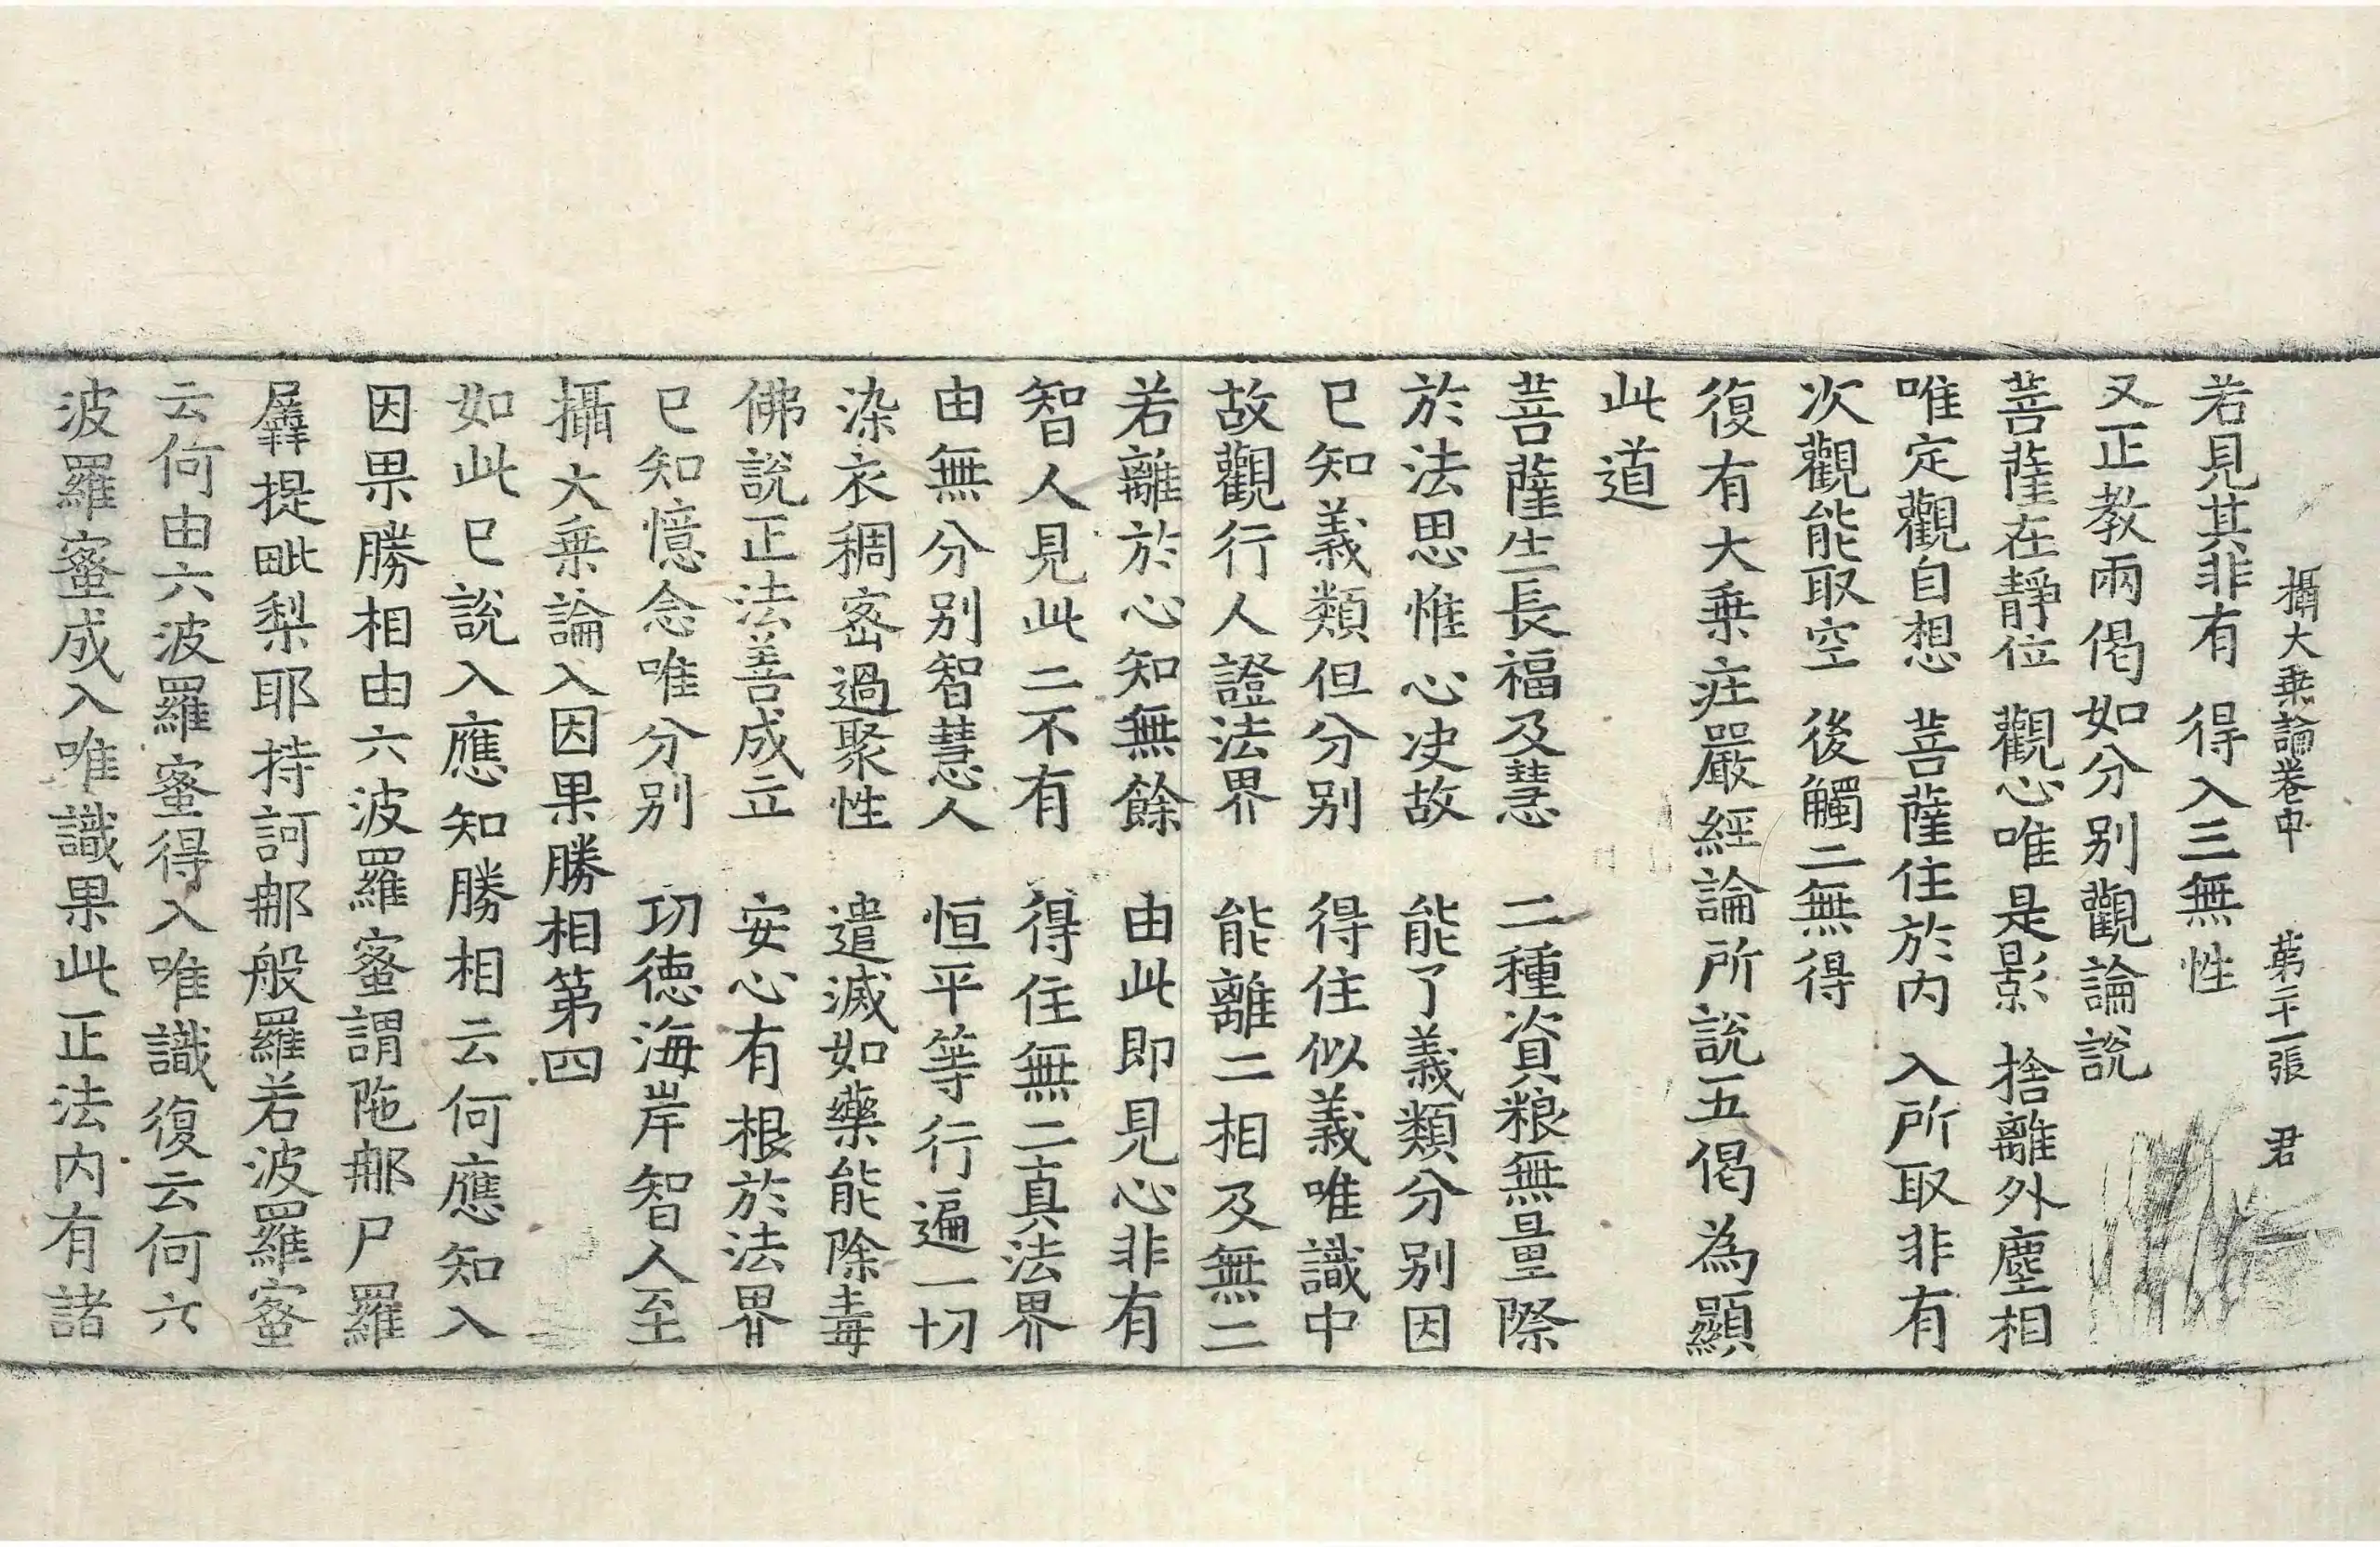 攝大乗論卷中 第二十一張 君
若見其非有 得入三無性
又正教兩偈如分别觀論說
菩薩在靜位 觀心唯是影 捨離外塵相
唯定觀自想 菩薩住於内 入所取非有
次觀能取空 後觸二無得
復有大乗莊嚴經論所說五偈為顯
此道
菩薩生長福及慧 二種資粮無量際
於法思惟心决故 能了義類分别因
已知義類但分别 得住似義唯識中
故觀行人證法界 能離二相及無二
若離於心知無餘 由此即見心非有
智人見此二不有 得住無二真法界
由無分别智慧人 恒平等行遍一切
染衣稠宻過聚性 遣滅如藥能除毒
佛說正法善成立 安心有根於法界
已知憶念唯分别 功德海岸智人至
攝大乗論入因果勝相第四
如此已說入應知勝相云何應知入
因果勝相由六波羅蜜謂陁郍尸羅
羼提毗梨耶持訶郍般羅若波羅蜜
云何由六波羅蜜得入唯識復云何六
波羅蜜成入唯識果此正法内有諸